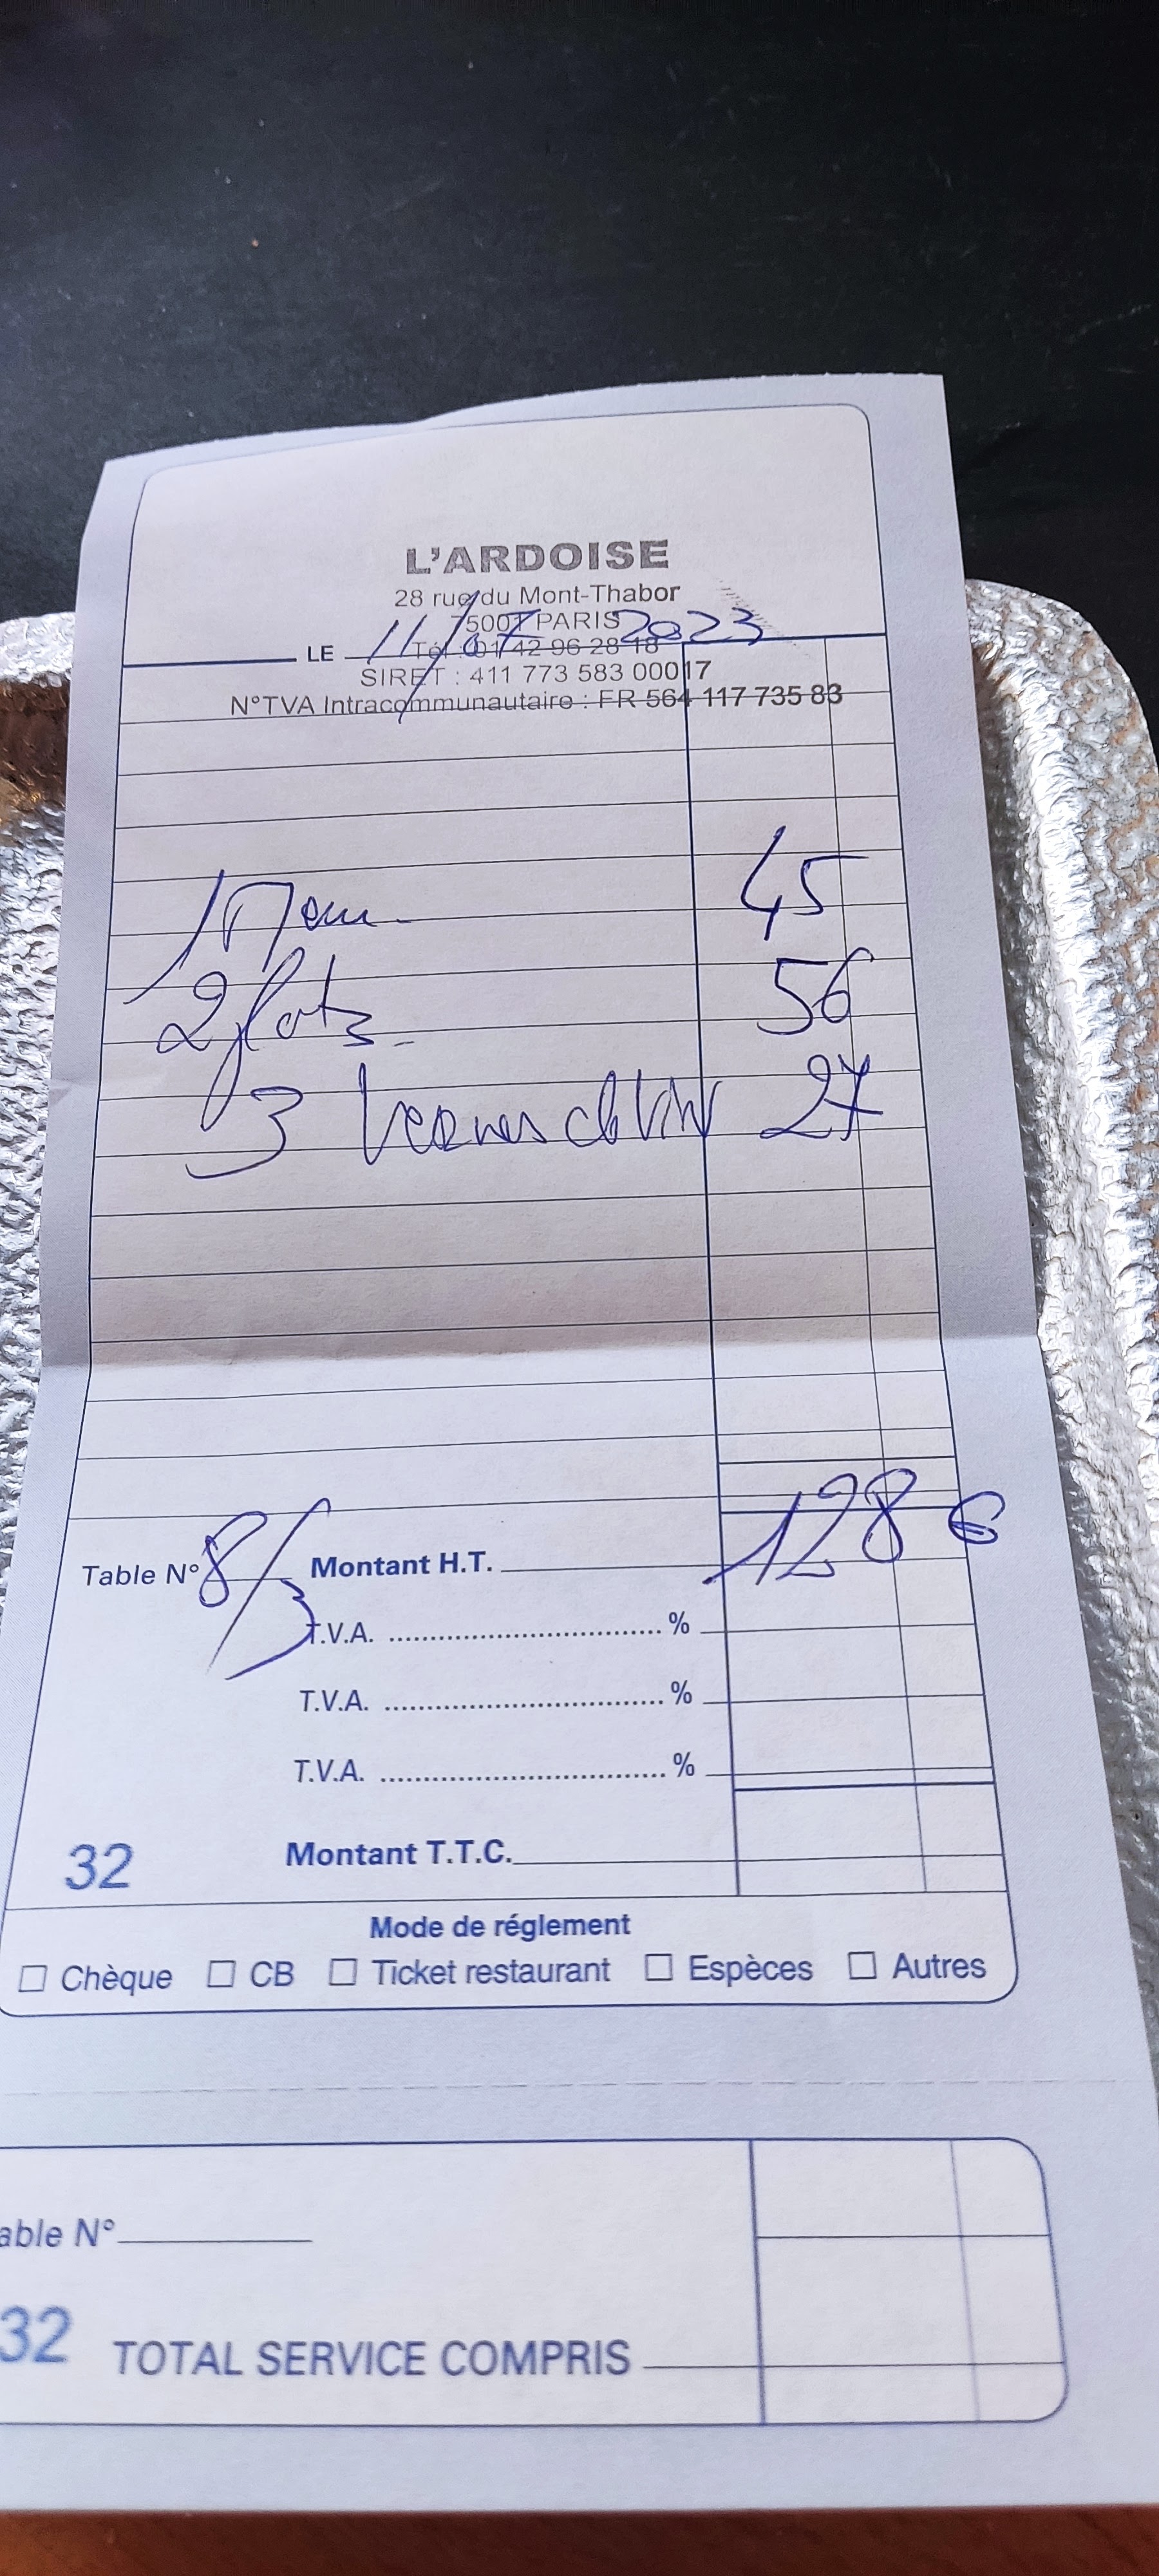 L'ARDOISE
28 rue du Mont-Thabor
75001 PARIS
Tél : 01 42 96 28 18
LE 11/07 2023
SIRET : 411 773 583 00017
N°TVA Intracommunautaire : FR 564 117 735 83
1 Menu 45
2 plats 56
3 verres de vin 27
128 €
Table N° 8/3 Montant H.T.
T.V.A. %
T.V.A. %
T.V.A. %
32 Montant T.T.C.
Mode de réglement
Chèque CB Ticket restaurant Espèces Autres
able N°
32 TOTAL SERVICE COMPRIS